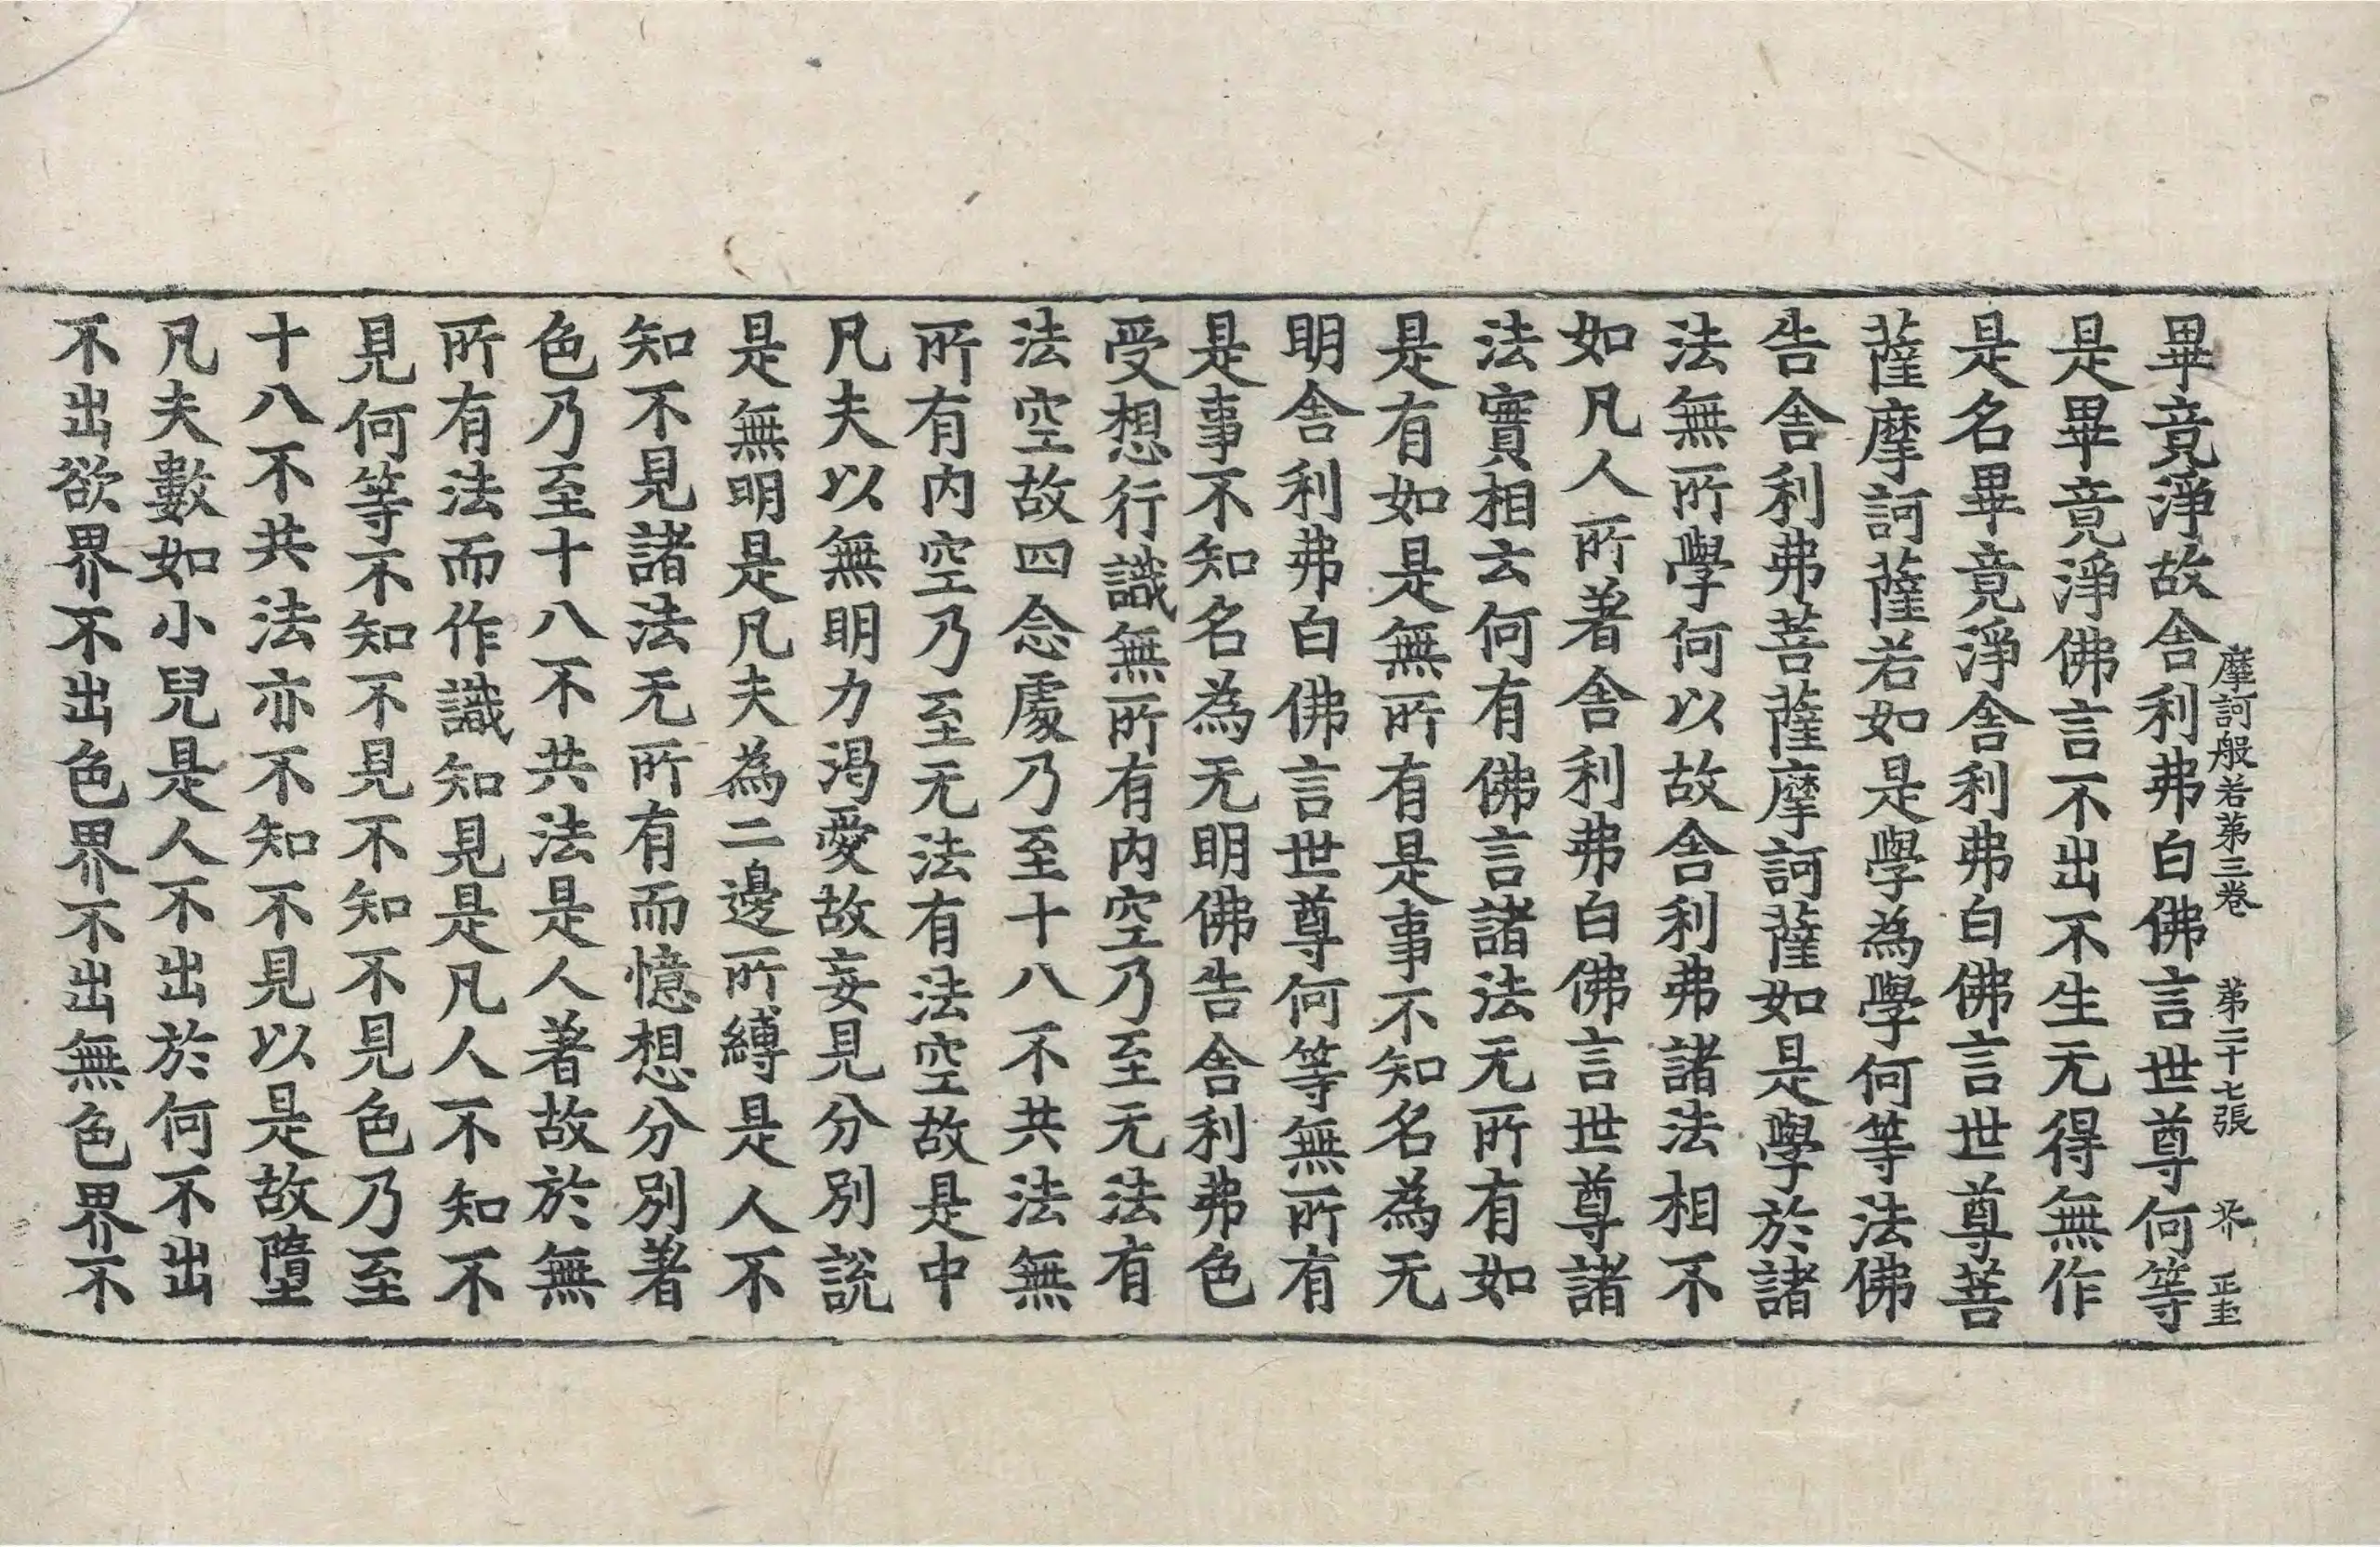 摩訶般若第三卷　第二十七張　芥　正圭
畢竟淨故舍利弗白佛言世尊何等
是畢竟淨佛言不出不生无得無作
是名畢竟淨舍利弗白佛言世尊菩
薩摩訶薩若如是學為學何等法佛
告舍利弗菩薩摩訶薩如是學於諸
法無所學何以故舍利弗諸法相不
如凡人所著舍利弗白佛言世尊諸
法實相云何有佛言諸法无所有如
是有如是無所有是事不知名為无
明舍利弗白佛言世尊何等無所有
是事不知名為无明佛告舍利弗色
受想行識無所有內空乃至无法有
法空故四念處乃至十八不共法無
所有內空乃至无法有法空故是中
凡夫以無明力渴愛故妄見分別說
是無明是凡夫為二邊所縛是人不
知不見諸法无所有而憶想分別著
色乃至十八不共法是人著故於無
所有法而作識知見是凡人不知不
見何等不知不見不知不見色乃至
十八不共法亦不知不見以是故墮
凡夫數如小兒是人不出於何不出
不出欲界不出色界不出無色界不